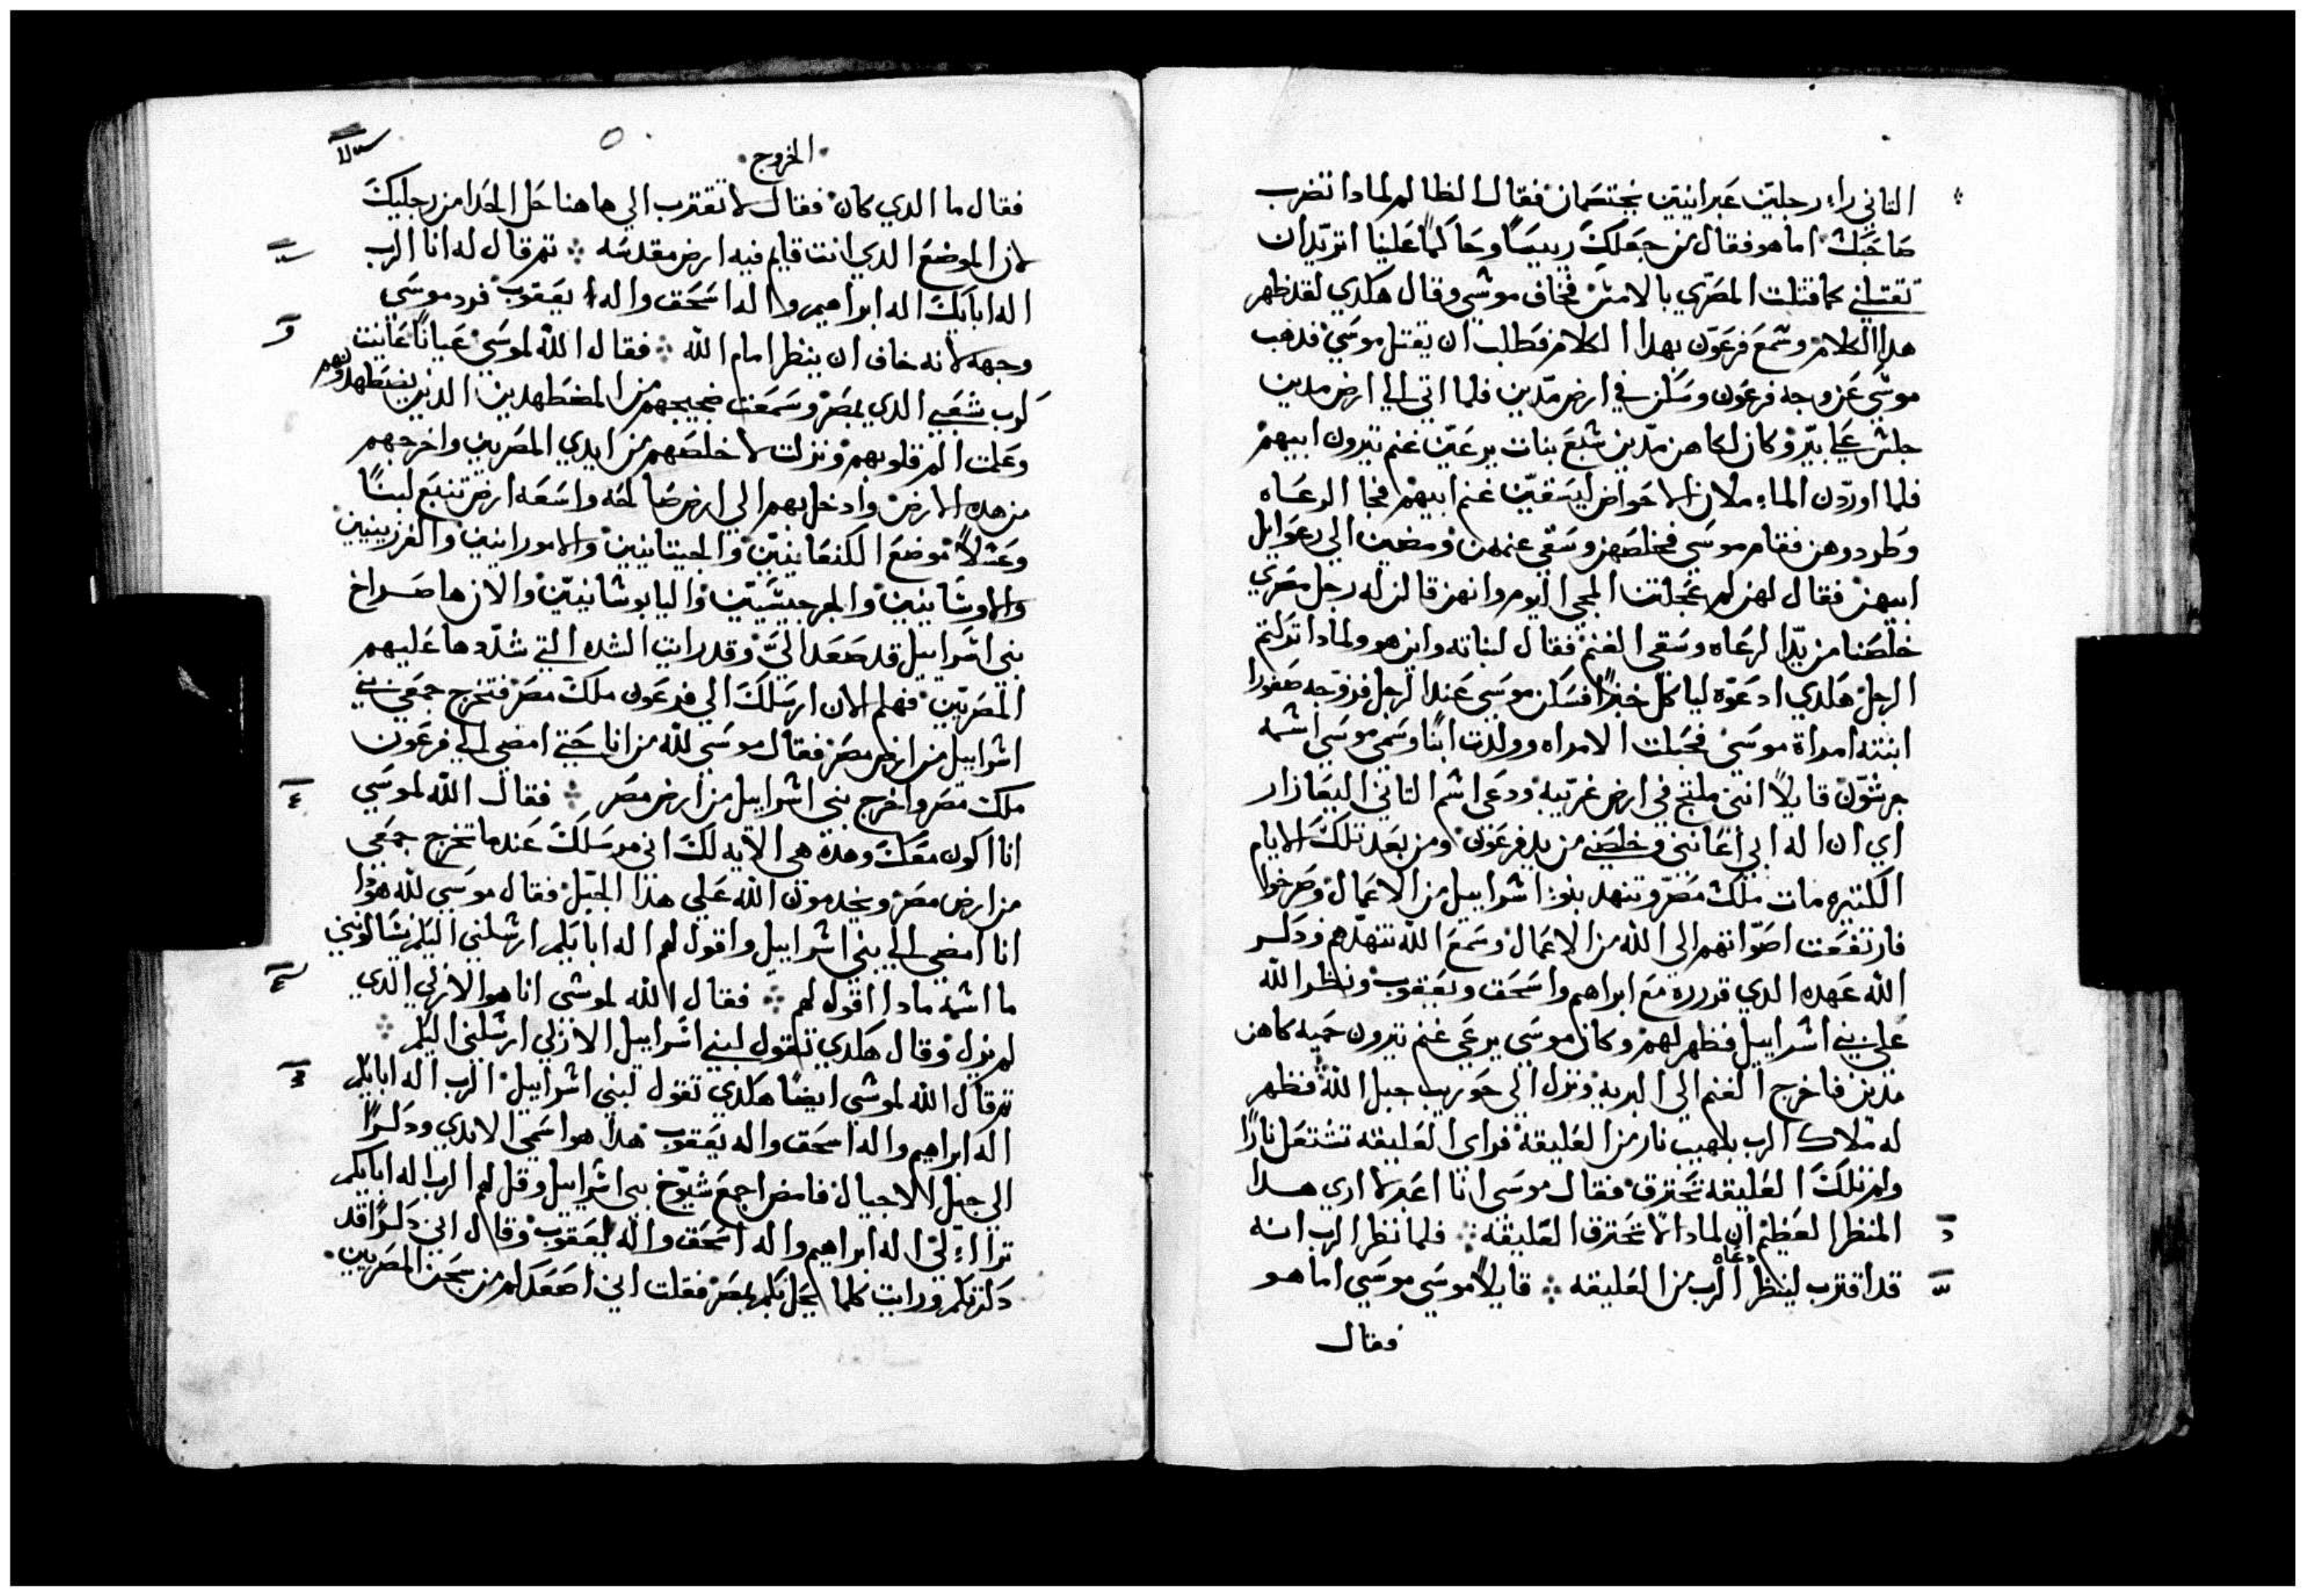 التاني راء رجلين عبرانيين يختصمان فقال للظالم لمادا تضرب
صاحبك اما هو فقال من جعلك رييسا وحاكما علينا اتريد ان
تقتلني كما قتلت المصري بالامس فخاف موسي وقال هكدي لقد ظهر
هدا الكلام وسمع فرعون بهدا الكلام فطلب ان يقتل موسي فدهب
موسي عن وجه فرعون وسكن في ارض مدين فلما اتي الي ارض مدين
جلس علي بير وكان لكاهن مدين سبع بنات يرعين غنم تيرون ابيهم
فلما اوردن الماء ملان الاحواض ليسقين غنم ابيهم فجا الرعاه
وطردوهن فقام موسي فخلصهن وسقي غنمهن ومضين الي رعوايل
ابيهن فقال لهن لم عجلتن المجي اليوم وانهن قالن له رجل مصري
خلصنا من يد الرعاه وسقي الغنم فقال لبناته واين هو ولمادا تركتم
الرجل هكدي ادعوه لياكل خبزا فسكن موسي عند الرجل فزوجه صفورا
ابنته امراة موسي فحبلت الامراه وولدت ابنا وسمي موسي اسمه
جرشون قايلا انني ملتج في ارض غريبه ودعي اسم التاني اليعازار
اي ان اله ابي اعانني وخلصني من يد فرعون ومن بعد تلك الايام
الكتيره مات ملك مصر وتنهد بنوا اسراييل من الاعمال وصرخوا
فارتفعت اصواتهم الي الله من الاعمال وسمع الله تنهدهم ودكر
الله عهده الدي قرره مع ابراهيم واسحق ويعقوب ونظر الله
علي بني اسراييل فظهر لهم وكان موسي يرعي غنم تيرون حميه كاهن
مدين فاخرج الغنم الي البريه ونزل الي حوريب جبل الله فظهر
له ملاك الرب بلهيب نار من العليقه فراي العليقه تشتعل نارا
ولم تلك العليقه تحترق فقال موسي انا اعبر لاري هدا
المنظر العظيم ان لمادا لا تحترق العليقه فلما نظر الرب انه
قد اقترب لينظر دعاه الرب من العليقه قايلا موسي موسي اما هو
فقال
الخروج
فقال ما الدي كان فقال لا تقترب الي هاهنا حل الحدا من رجليك
لان الموضع الدي انت قايم فيه ارض مقدسه تم قال له انا الرب
اله ابايك اله ابراهيم واله اسحق واله يعقوب فرد موسي
وجهه لانه خاف ان ينظر امام الله فقال الله لموسي عيانا عاينت
كرب شعبي الدي بمصر وسمعت ضجيجهم من المضطهدين الدين يضطهدونهم
وعلمت الم قلوبهم ونزلت لاخلصهم من ايدي المصريين واخرجهم
من هده الارض وادخل بهم الي ارض صالحه واسعه ارض تنبع لبنا
وعسلا موضع الكنعانيين والحيتانيين والامورانيين والفرزينيين
والاوشانيين والجرجيسيين واليابوسانيين والان ها صراخ
بني اسراييل قد صعد الي وقد رايت الشده التي شددها عليهم
المصريين فهلم الان ارسلك الي فرعون ملك مصر فتخرج جمعي بني
اسراييل من ارض مصر فقال موسي لله من انا حتي امضي الي فرعون
ملك مصر واخرج بني اسراييل من ارض مصر فقال الله لموسي
انا اكون معك وهده هي الايه لك اني مرسلك عندما تخرج جمعي
من ارض مصر ويخدمون الله علي هدا الجبل فقال موسي لله هودا
انا امضي الي بني اسراييل واقول لهم اله ابايكم ارسلني اليكم يسالونني
ما اسمه مادا اقول لهم فقال الله لموسي انا هو الازلي الدي
لم يزل وقال هكدي تقول لبني اسراييل الازلي ارسلني اليكم
تم قال الله لموسي ايضا هكدي تقول لبني اسراييل الرب اله ابايكم
اله ابراهيم واله اسحق واله يعقوب هدا هو اسمي الابدي ودكرا
الي جيل الاجيال فامض اجمع شيوخ بني اسراييل وقل لهم الرب اله ابايكم
تراا لي اله ابراهيم واله اسحق واله يعقوب وقال اني دكرا قد
دكرتكم ورايت كلما يحل بكم بمصر فقلت اني اصعدكم من سجن المصريين